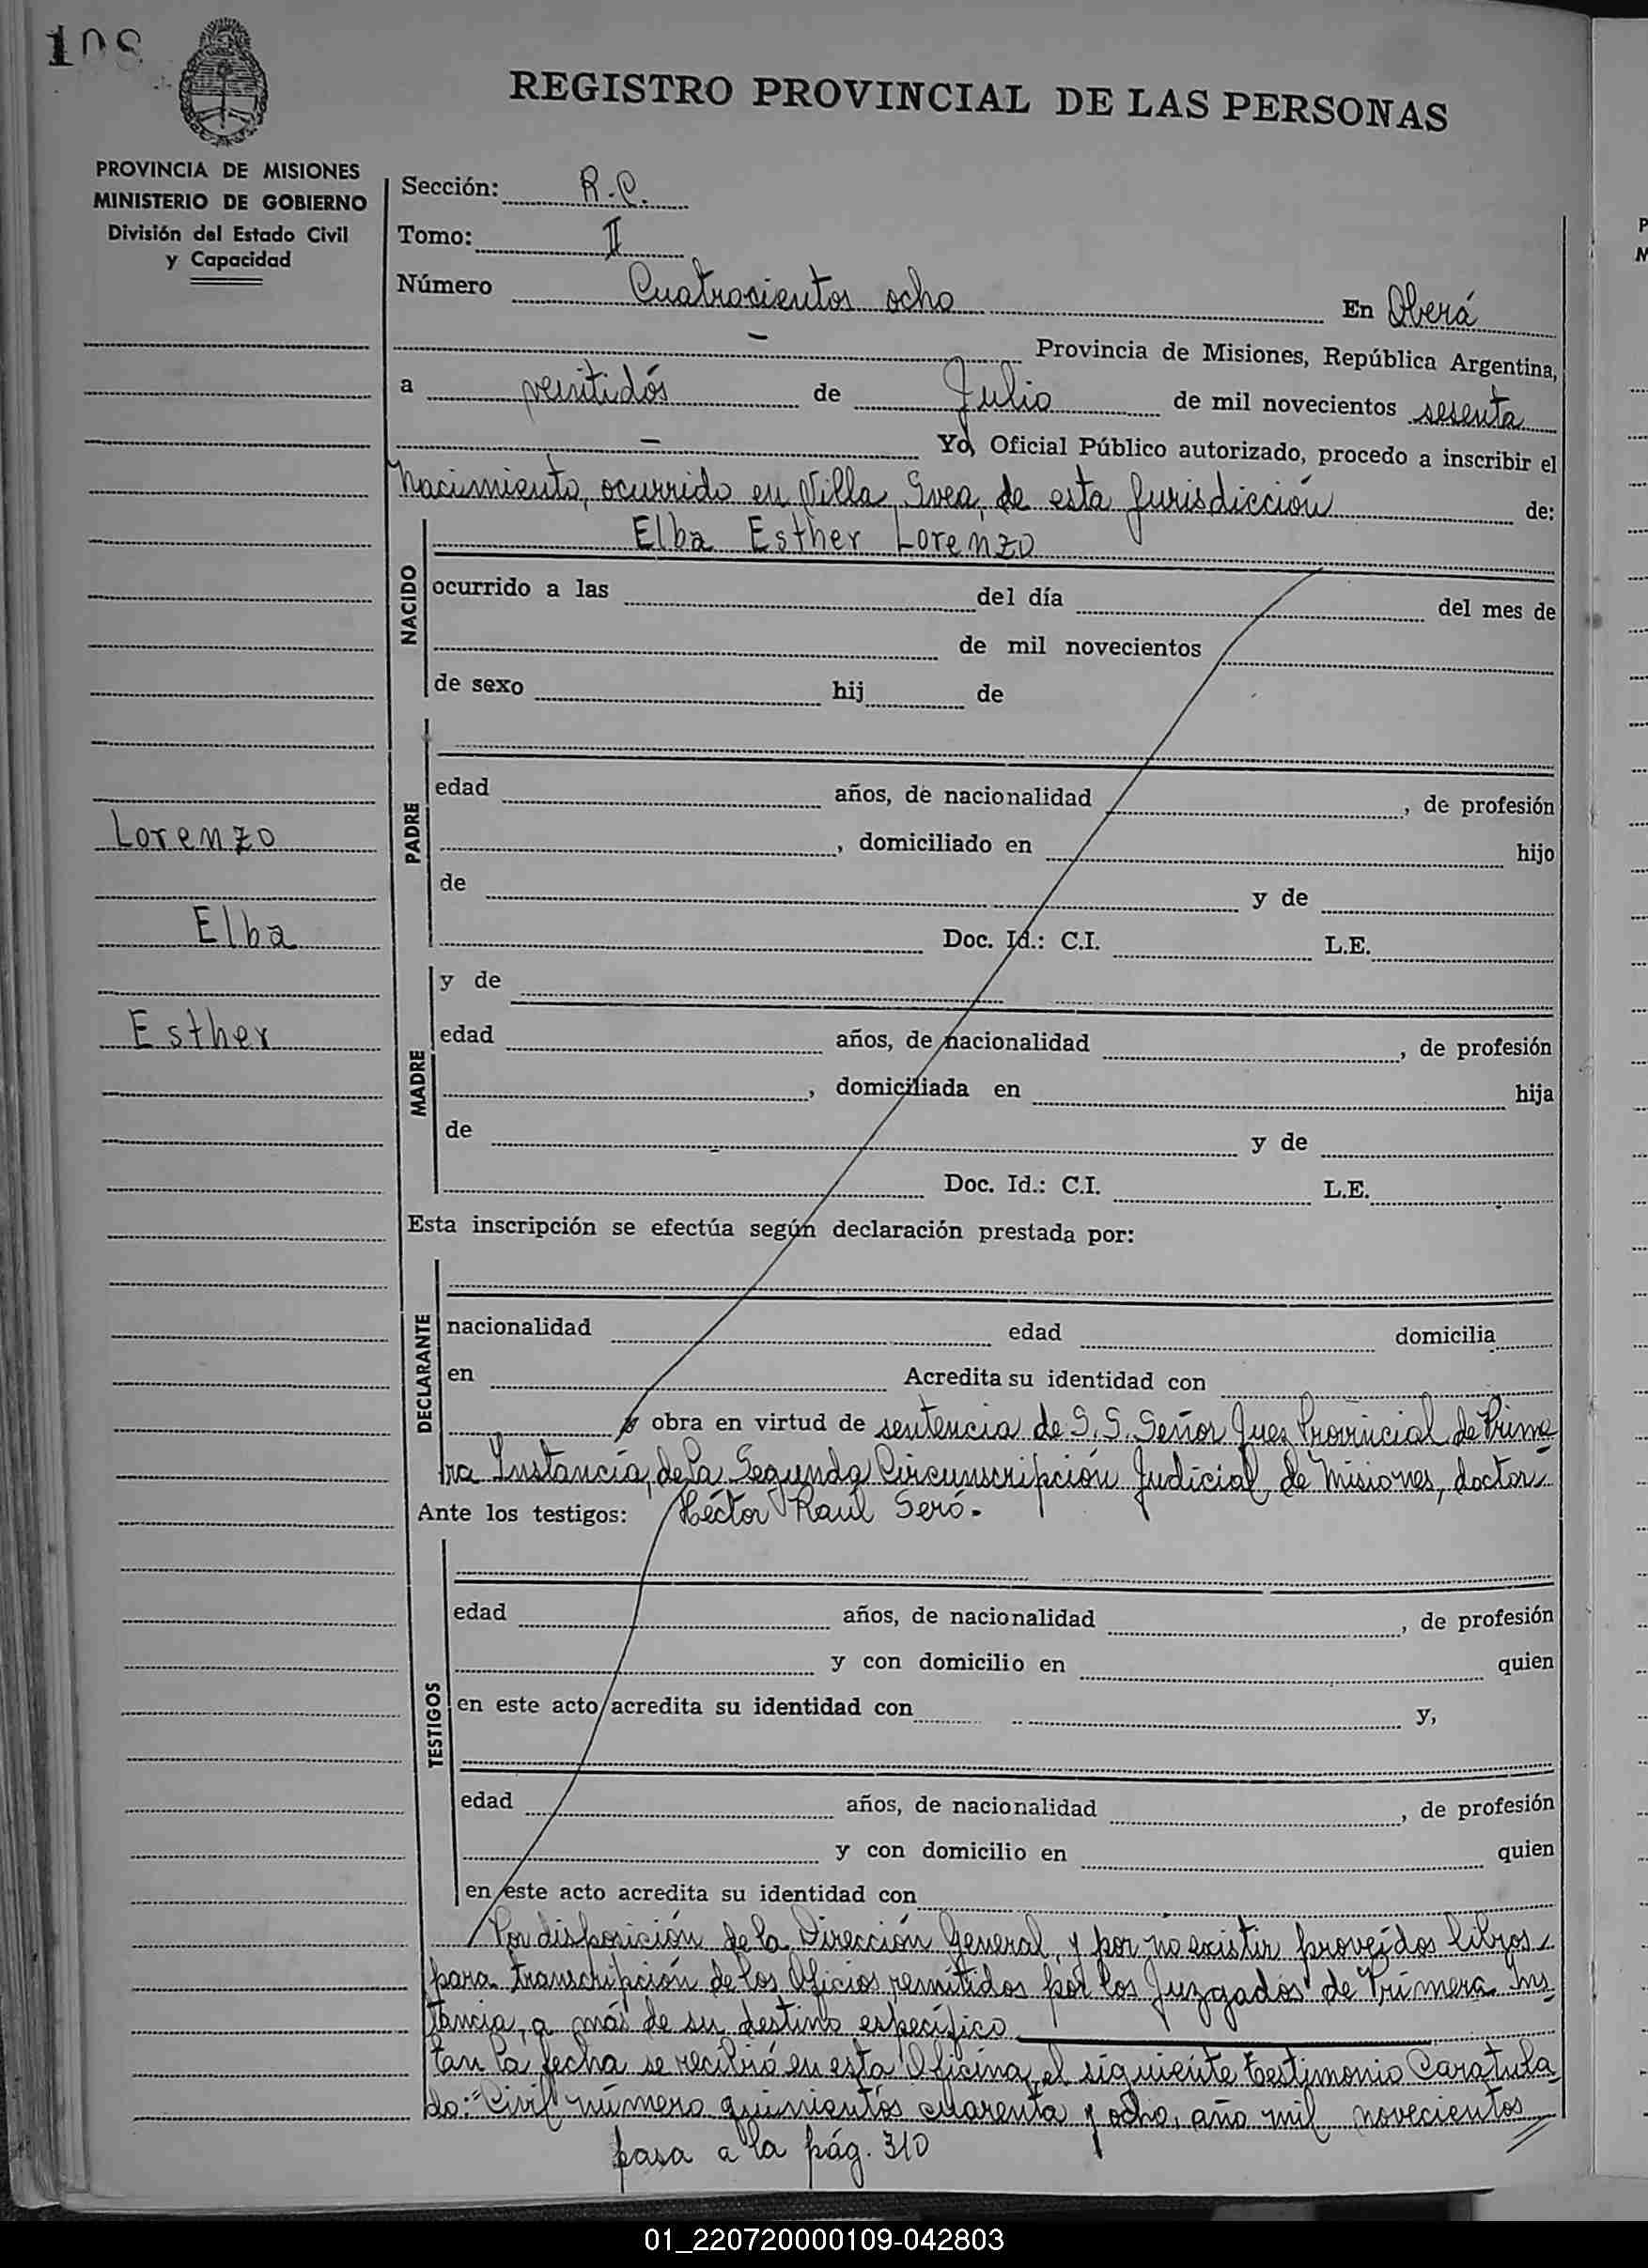 108
REGISTRO PROVINCIAL DE LAS PERSONAS
PROVINCIA DE MISIONES
MINISTERIO DE GOBIERNO
División del Estado Civil
y Capacidad
Sección: R.C.
Tomo: II
Número Cuatrocientos ocho En Oberá
Provincia de Misiones, República Argentina,
a veintidós de Julio de mil novecientos sesenta
Yo, Oficial Público autorizado, procedo a inscribir el
Nacimiento, ocurrido en Villa Svea, de esta Jurisdicción de:
NACIDO
Elba Esther Lorenzo
ocurrido a las del día del mes de
de mil novecientos
de sexo hij de
PADRE
edad años, de nacionalidad , de profesión
, domiciliado en hijo
de y de
Doc. Id.: C.I. L.E.
Lorenzo
Elba
Esther
MADRE
y de
edad años, de nacionalidad , de profesión
, domiciliada en hija
de y de
Doc. Id.: C.I. L.E.
Esta inscripción se efectúa según declaración prestada por:
DECLARANTE
nacionalidad edad domicilia
en Acredita su identidad con
obra en virtud de sentencia de S.S. Señor Juez Provincial de Prime
ra Instancia, de la Segunda Circunscripción Judicial de Misiones, doctor
Ante los testigos: Héctor Raúl Seró.-
TESTIGOS
edad años, de nacionalidad , de profesión
y con domicilio en quien
en este acto acredita su identidad con y,
edad años, de nacionalidad , de profesión
y con domicilio en quien
en este acto acredita su identidad con
Por disposición de la Dirección General, y por no existir proveídos libros
para transcripción de los Oficios remitidos por los Juzgados de Primera Ins
tancia, a más de su destino específico
la fecha se recibió en esta Oficina, el siguiente testimonio Caratula
do: "Civil número quinientos cuarenta y ocho, año mil novecientos
pasa a la pág. 310
01_220720000109-042803